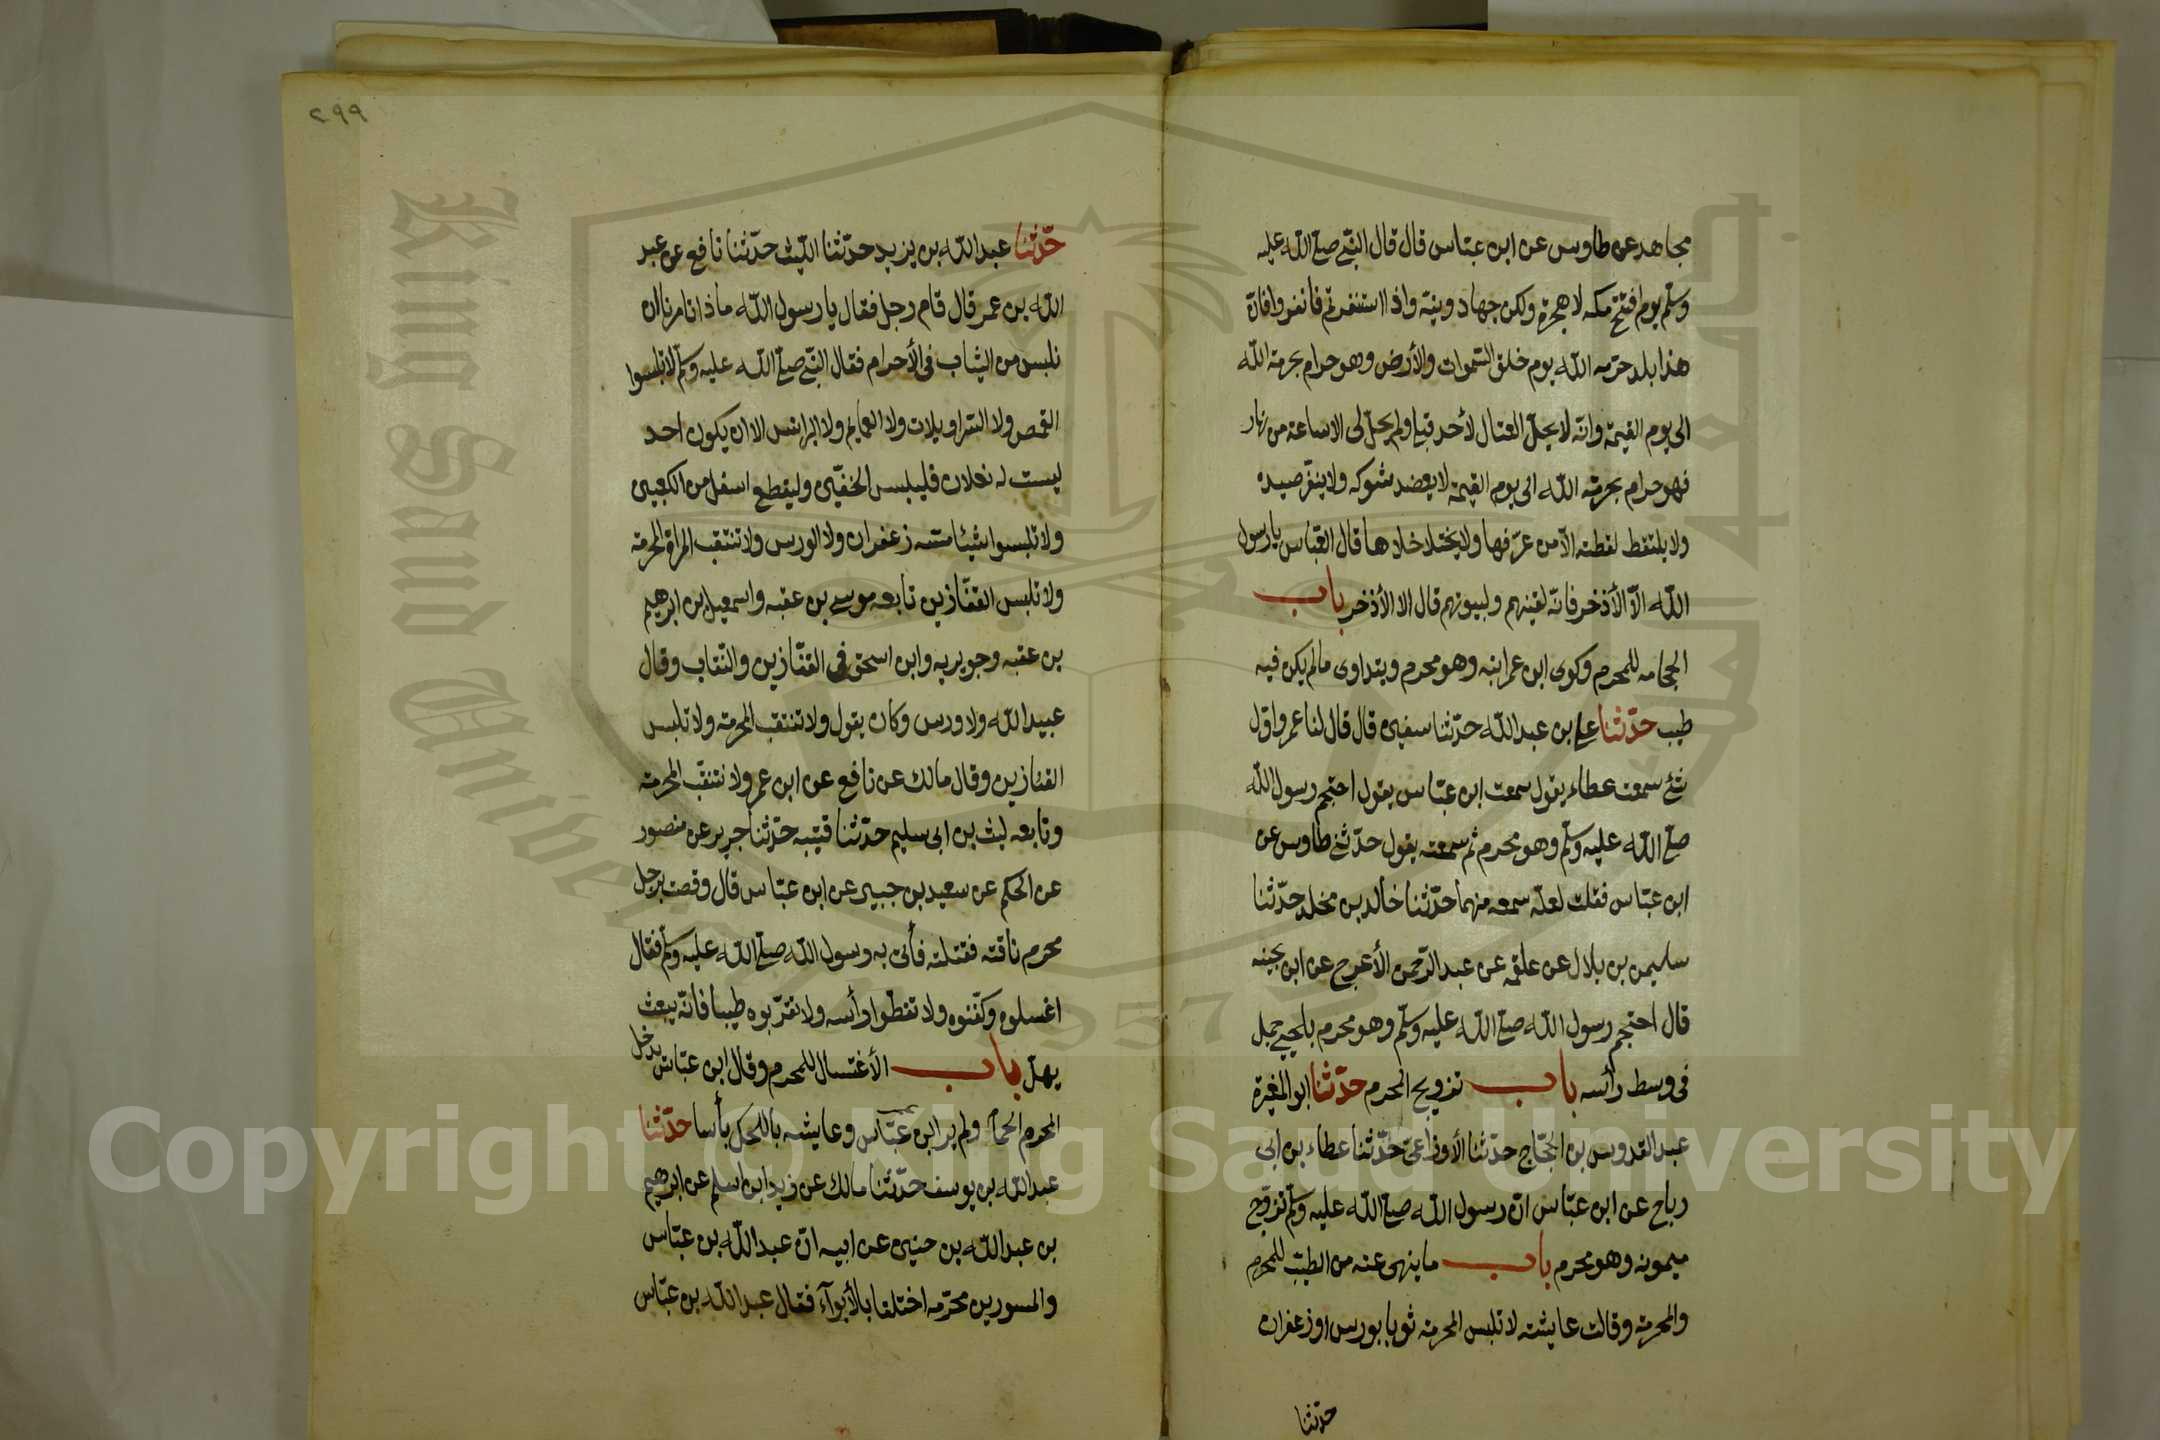 مجاهد عن طاوس عن ابن عبّاس قال قال النبّي صلّى الله عليه
وسلّم يوم افتتح مكه لا هجرة ولكن جهاد ونيّة واذا استنفرتم فانفروا فانّ
هذا بلد حرّمه الله يوم خلق السّموات والأرض وهو حرام بحرمة الله
الى يوم القيمة وانّه لا يحلّ القتال لأحد قبلي ولم يحلّ لى الا ساعة من نهار
فهو حرام بحرمة الله الى يوم القيمة لا يعضد شوكه ولا ينفّر صيده
ولا يلتقط لقطته الّا من عرّفها ولا يختلا خلاها قال العبّاس يا رسول
الله الّا الأذخر فانّه لقينهم ولبيوتهم قال الا الأذخر باب
الحجامه للمحرم وكوى ابن عمر ابنه وهو محرم ويتداوى مالم يكن فيه
طيب حدّثنا علي بن عبد الله حدّثنا سفين قال قال لنا عمرو اوّل
شئ سمعت عطاء يقول سمعت ابن عبّاس يقول احتجم رسول الله
صلّى الله عليه وسلّم وهو محرم ثم سمعته يقول حدّثني طاوس عن
ابن عبّاس فقلت لعلّه سمعه منهما حدّثنا خالد بن مخلد حدّثنا
سليمن بن بلال عن علقمه عن عبد الرّحمن الأعرج عن ابن بحينه
قال احتجم رسول الله صلّى الله عليه وسلّم وهو محرم بلحيي جمل
فى وسط رأسه باب تزويج المحرم حدّثنا ابو المغيرة
عبد القدوس بن الحجّاج حدّثنا الأوزاعىّ حدّثنا عطاء بن ابى
رباح عن ابن عبّاس انّ رسول الله صلّى الله عليه وسلّم تزوّج
ميمونه وهو محرم باب ما ينهى عنه من الطيّب للمحرم
والمحرمة وقالت عايشه لا تلبس المحرمة ثوبا بورس او زعفران
حدّثنا
٢٩٩
حدّثنا عبد الله بن يزيد حدّثنا اللّيث حدّثنا نافع عن عبد
الله بن عمر قال قام رجل فقال يا رسول الله ماذا تامرنا ان
نلبس من الثياب فى الأحرام فقال النبّي صلّى الله عليه وسلّم لا تلبسوا
القمص ولا السّراويلات ولا العمايم ولا البرانس الا ان يكون احد
ليست له نعلان فليلبس الخفّين وليقطع اسفل من الكعبين
ولا تلبسوا شيئا مسّه زعفران ولا الورس ولا تنتقب المراة المحرمة
ولا تلبس القفّازين تابعه موسى بن عقبه واسمعيل بن ابرهيم
بن عقبه وجويريه وابن اسحق فى القفّازين والنّقاب وقال
عبيد الله ولا ورس وكان يقول ولا تنتقب المحرمة ولا تلبس
القفازين وقال مالك عن نافع عن ابن عمر ولا تنتقّب المحرمة
وتابعه ليث بن ابى سليم حدّثنا قتيبه حدّثنا جرير عن منصور
عن الحكم عن سعيد بن جبير عن ابن عبّاس قال وقصت برجل
محرم ناقته فقتلته فأتى به رسول الله صلّى الله عليه وسلّم فقال
اغسلوه وكفّنوه ولا تغطّوا رأسه ولا تقرّبوه طيبا فانّه يبعث
يهلّ باب الأغتسال للمحرم وقال ابن عبّاس يدخل
المحرم الحمّام ولم ير ابن عمر وعايشه بالحكّ بأسا حدّثنا
عبد الله بن يوسف حدّثنا مالك عن زيد ابن اسلم عن ابرهيم
بن عبد الله بن حنين عن ابيه انّ عبد الله بن عبّاس
والمسور بن مخرّمه اختلفا بالأبوآء فقال عبد الله بن عبّاس
Copyright © King Saud University
King Saud University
1957